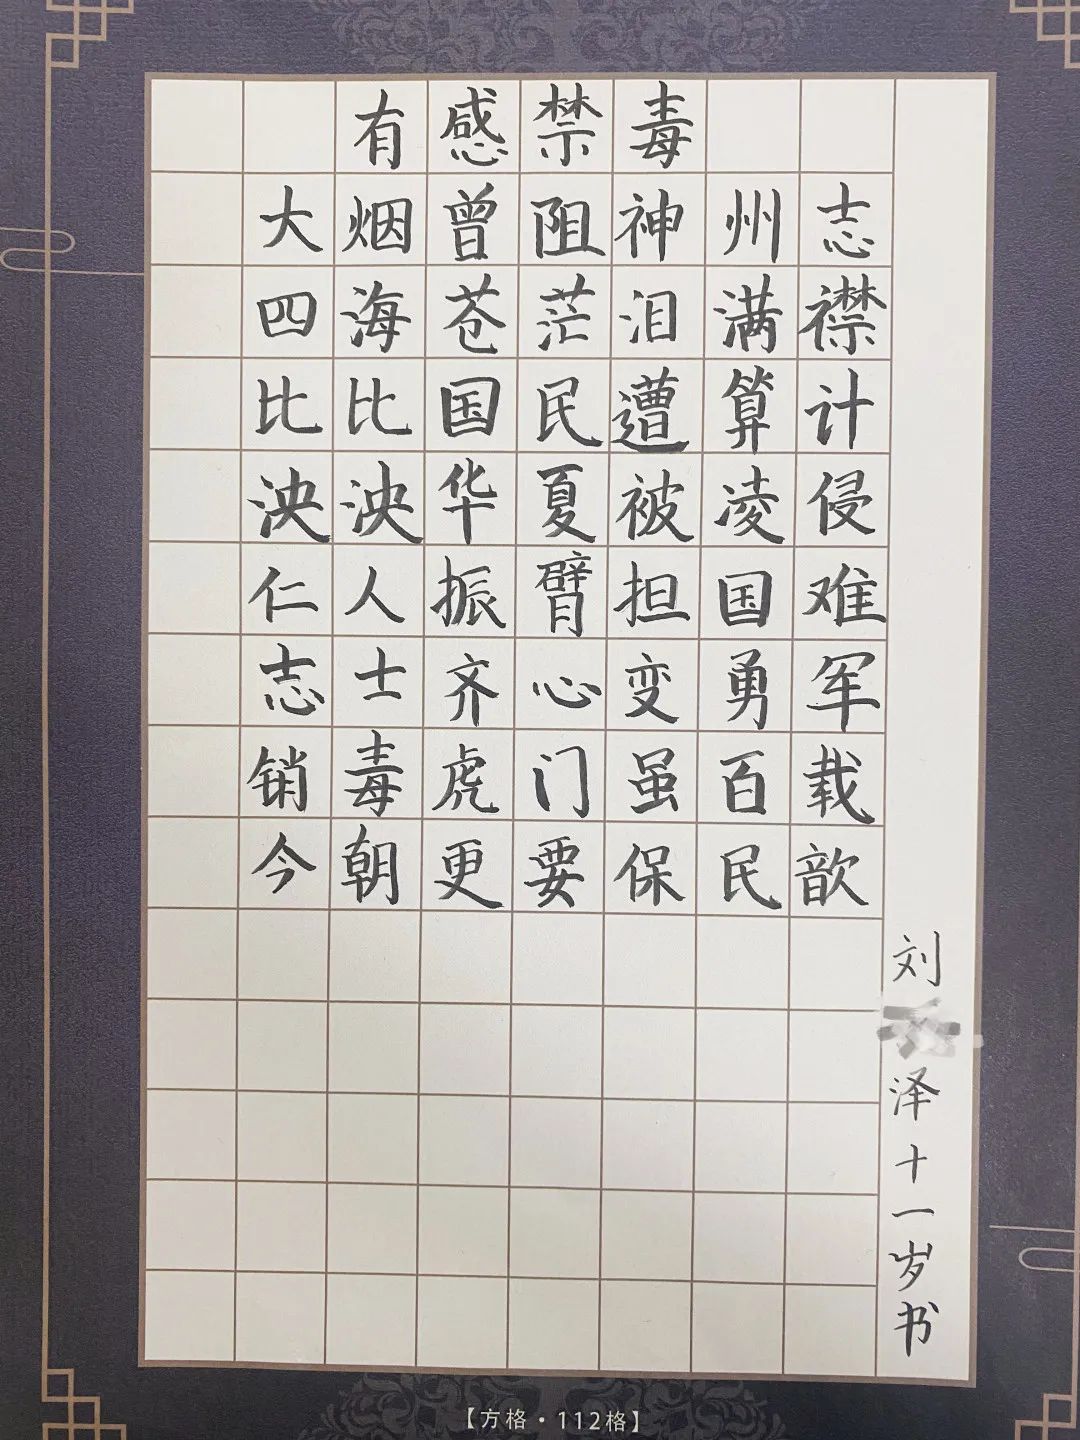 有感禁毒
大烟曾阻神州志
四海苍茫泪满襟
比比国民遭算计
泱泱华夏被凌侵
仁人振臂担国难
志士齐心变勇军
销毒虎门虽百载
今朝更要保民歆
刘泽十一岁书
【方格·112格】